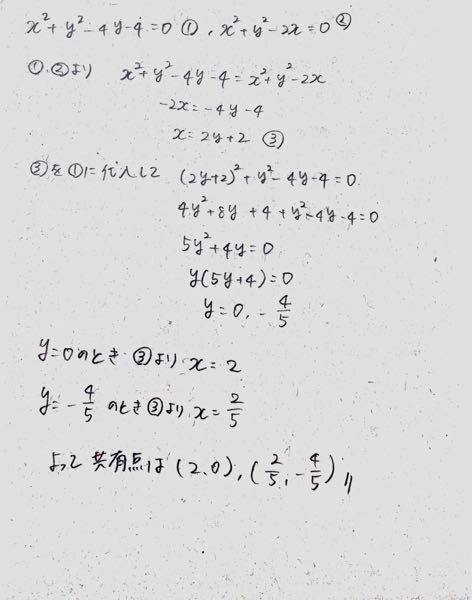 x²+y²-4y-4=0 ①, x²+y²-2x=0 ②
①.②より x²+y²-4y-4=x²+y²-2x
-2x=-4y-4
x=2y+2 ③
③を①に代入して (2y+2)²+y²-4y-4=0
4y²+8y+4+y²-4y-4=0
5y²+4y=0
y(5y+4)=0
y=0, -4/5
y=0のとき ③より x=2
y=-4/5 のとき③より x=2/5
よって 共有点は (2.0), (2/5, -4/5)〃